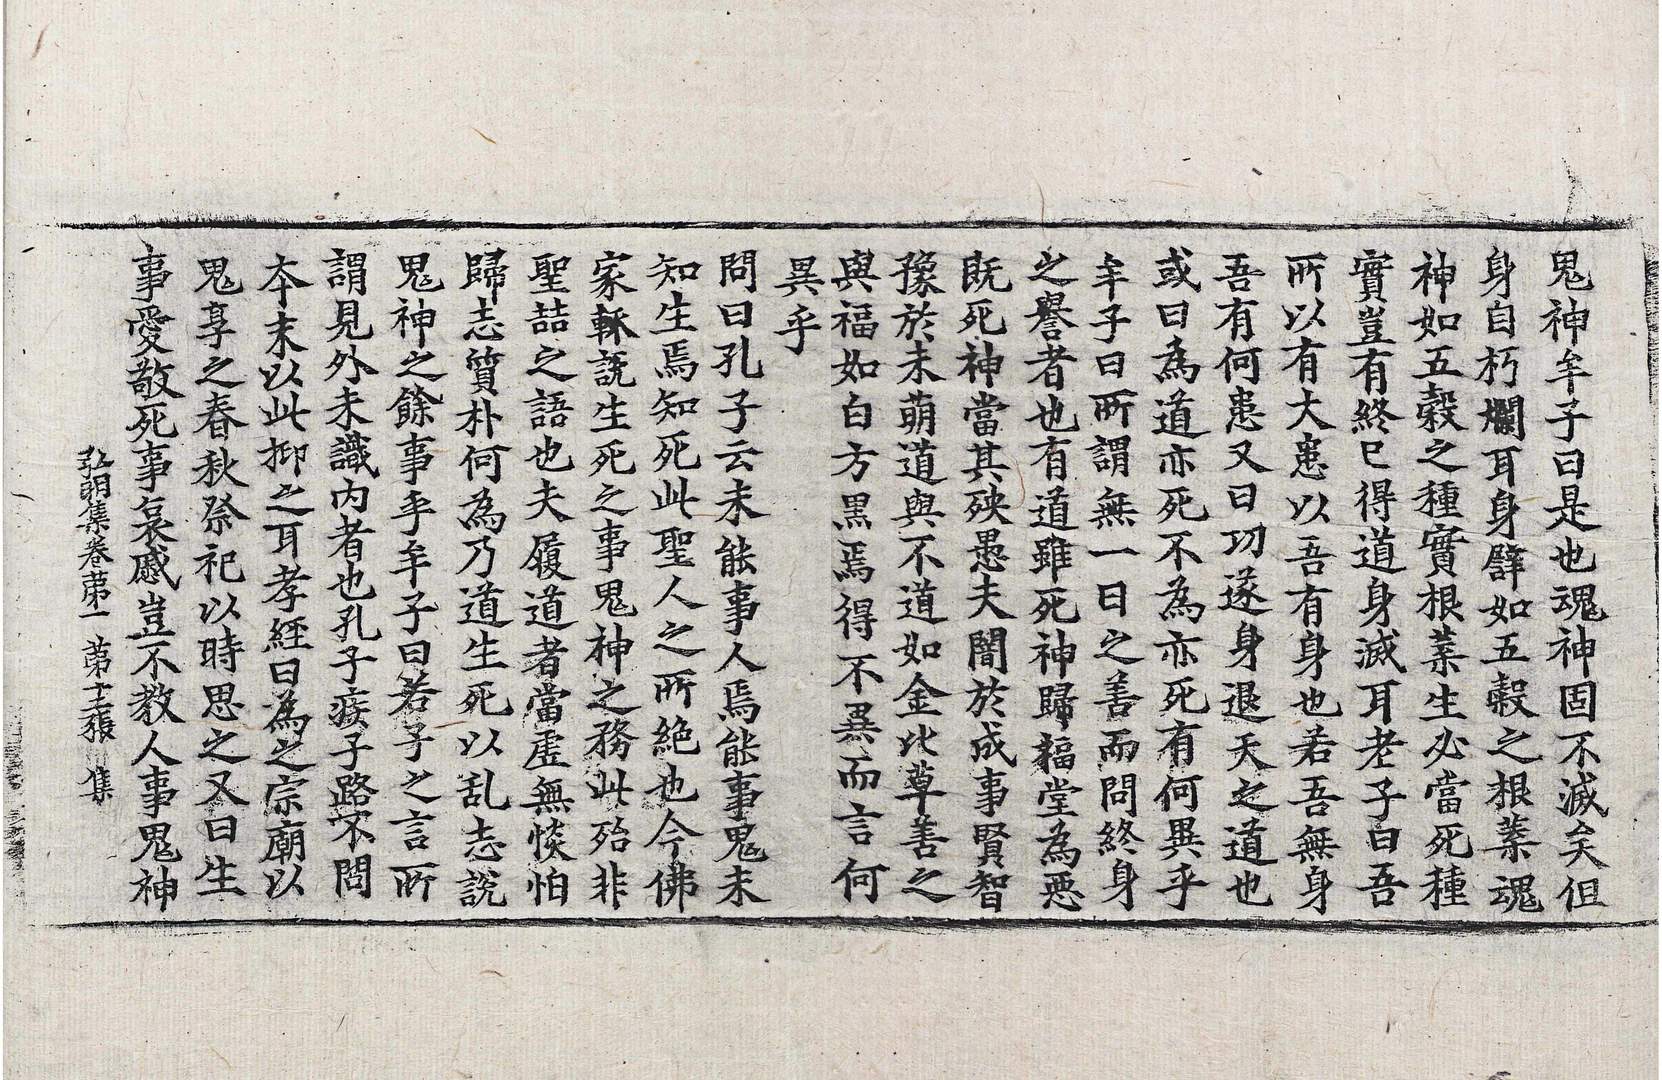 鬼神牟子曰是也魂神固不滅矣但
身自朽爛耳身辟如五穀之根葉魂
神如五穀之種實根葉生必當死種
實豈有終已得道身滅耳老子曰吾
所以有大患以吾有身也若吾無身
吾有何患又曰功遂身退天之道也
或曰為道亦死不為亦死有何異乎
牟子曰所謂無一日之善而問終身
之譽者也有道雖死神歸福堂為惡
既死神當其殃愚夫闇於成事賢智
豫於未萌道與不道如金比草善之
與福如白方黑焉得不異而言何
異乎
問曰孔子云未能事人焉能事鬼未
知生焉知死此聖人之所絕也今佛
家輒說生死之事鬼神之務此殆非
聖喆之語也夫履道者當虛無惔怕
歸志質朴何為乃道生死以乱志說
鬼神之餘事乎牟子曰若子之言所
謂見外未識內者也孔子疾子路不問
本末以此抑之耳孝經曰為之宗廟以
鬼享之春秋祭祀以時思之又曰生
事愛敬死事哀慼豈不教人事鬼神
弘明集卷苐一 苐十二張 集